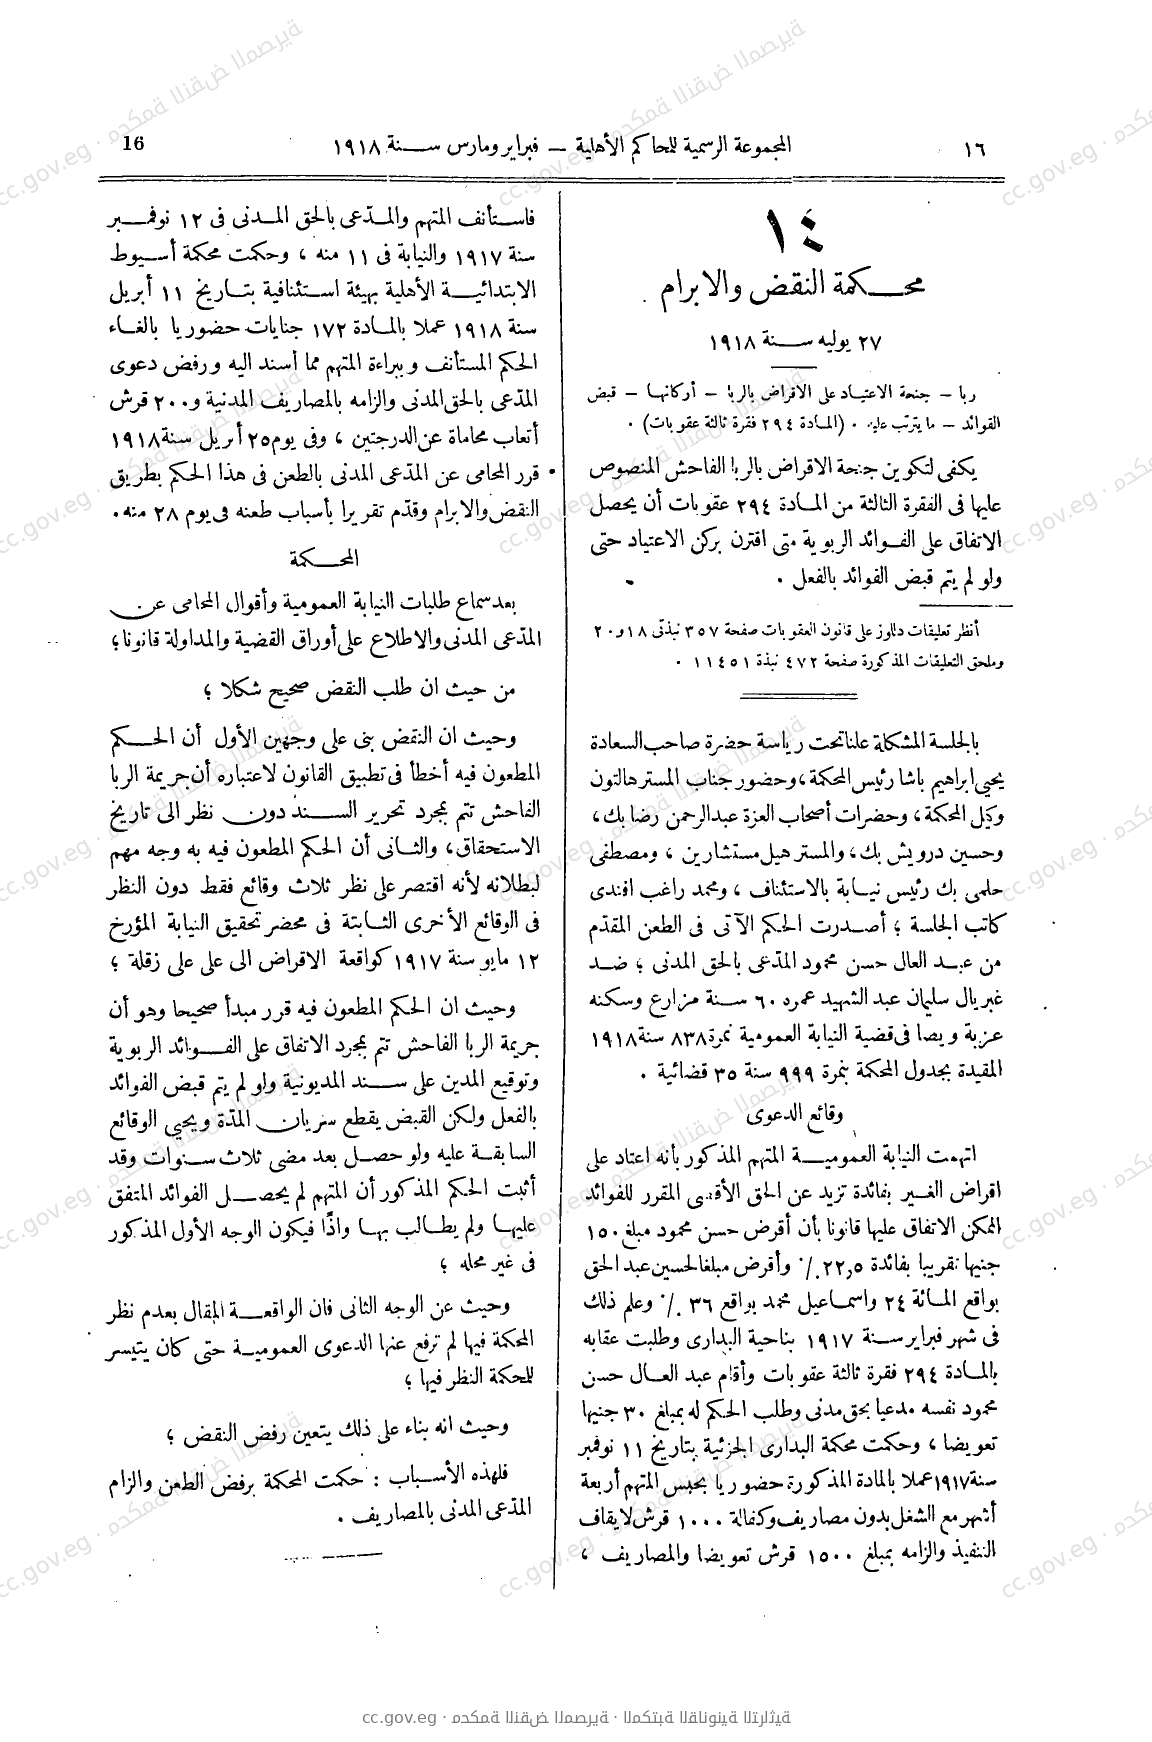 ١٦
المجموعة الرسمية للمحاكم الأهلية — فبراير ومارس سنة ١٩١٨
16
١٤
محكمة النقض والابرام
٢٧ يوليه سنة ١٩١٨
ربا – جنحة الاعتياد على الاقراض بالربا – أركانها – قبض
الفوائد – ما يترتب عليه . (المادة ٢٩٤ فقرة ثالثة عقوبات) .
يكفى لتكوين جنحة الاقراض بالربا الفاحش المنصوص
عليها فى الفقرة الثالثة من المادة ٢٩٤ عقوبات أن يحصل
الاتفاق على الفوائد الربوية متى اقترن بركن الاعتياد حتى
ولو لم يتم قبض الفوائد بالفعل .
أنظر تعليقات دالوز على قانون العقوبات صفحة ٣٥٧ نبذتى ١٨ و٢٠
وملحق التعليقات المذكورة صفحة ٤٧٢ نبذة ١١٤٥١ .
بالجلسة المشكلة علنا تحت رياسة حضرة صاحب السعادة
يحيى ابراهيم باشا رئيس المحكمة ، وحضور جناب المستر هالتون
وكيل المحكمة ، وحضرات أصحاب العزة عبد الرحمن رضا بك ،
وحسين درويش بك ، والمستر هيل مستشارين ، ومصطفى
حلمى بك رئيس نيابة بالاستئناف ، ومحمد راغب افندى
كاتب الجلسة ؛ أصدرت الحكم الآتى فى الطعن المقدّم
من عبد العال حسن محمود المدّعى بالحق المدنى ؛ ضد
غبريال سليمان عبد الشهيد عمره ٦٠ سنة مزارع وسكنه
عزبة ويصا فى قضية النيابة العمومية نمرة ٨٣٨ سنة ١٩١٨
المقيدة بجدول المحكمة بنمرة ٩٩٩ سنة ٣٥ قضائية .
وقائع الدعوى
اتهمت النيابة العمومية المتهم المذكور بأنه اعتاد على
اقراض الغير بفائدة تزيد عن الحق الأقصى المقرر للفوائد
الممكن الاتفاق عليها قانونا بأن أقرض حسن محمود مبلغ ١٥٠
جنيها تقريبا بفائدة ٢٢,٥ ٪ وأقرض مبلغا لحسين عبد الحق
بواقع المائة ٢٤ واسماعيل محمد بواقع ٣٦ ٪ وعلم ذلك
فى شهر فبراير سنة ١٩١٧ بناحية البدارى وطلبت عقابه
بالمادة ٢٩٤ فقرة ثالثة عقوبات وأقام عبد العال حسن
محمود نفسه مدعيا بحق مدنى وطلب الحكم له بمبلغ ٣٠ جنيها
تعويضا ، وحكمت محكمة البدارى الجزئية بتاريخ ١١ نوفمبر
سنة ١٩١٧ عملا بالمادة المذكورة حضوريا بحبس المتهم أربعة
أشهر مع الشغل بدون مصاريف وكفالة ١٠٠٠ قرش لايقاف
التنفيذ والزامه بمبلغ ١٥٠٠ قرش تعويضا والمصاريف ،
فاستأنف المتهم والمدّعى بالحق المدنى فى ١٢ نوفمبر
سنة ١٩١٧ والنيابة فى ١١ منه ، وحكمت محكمة أسيوط
الابتدائية الأهلية بهيئة استئنافية بتاريخ ١١ أبريل
سنة ١٩١٨ عملا بالمادة ١٧٢ جنايات حضوريا بالغاء
الحكم المستأنف وببراءة المتهم مما أسند اليه ورفض دعوى
المدّعى بالحق المدنى والزامه بالمصاريف المدنية و٢٠٠ قرش
أتعاب محاماة عن الدرجتين ، وفى يوم ٢٥ أبريل سنة ١٩١٨
قرر المحامى عن المدّعى المدنى بالطعن فى هذا الحكم بطريق
النقض والابرام وقدّم تقريرا بأسباب طعنه فى يوم ٢٨ منه .
المحكمة
بعد سماع طلبات النيابة العمومية وأقوال المحامى عن
المدّعى المدنى والاطلاع على أوراق القضية والمداولة قانونا ؛
من حيث ان طلب النقض صحيح شكلا ؛
وحيث ان النقض بنى على وجهين الأول أن الحكم
المطعون فيه أخطأ فى تطبيق القانون لاعتباره أن جريمة الربا
الفاحش تتم بمجرد تحرير السند دون نظر الى تاريخ
الاستحقاق ، والثانى أن الحكم المطعون فيه به وجه مهم
لبطلانه لأنه اقتصر على نظر ثلاث وقائع فقط دون النظر
فى الوقائع الأخرى الثابتة فى محضر تحقيق النيابة المؤرخ
١٢ مايو سنة ١٩١٧ كواقعة الاقراض الى على على زقلة ؛
وحيث ان الحكم المطعون فيه قرر مبدأ صحيحا وهو أن
جريمة الربا الفاحش تتم بمجرد الاتفاق على الفوائد الربوية
وتوقيع المدين على سند المديونية ولو لم يتم قبض الفوائد
بالفعل ولكن القبض يقطع سريان المدّة ويحيى الوقائع
السابقة عليه ولو حصل بعد مضى ثلاث سنوات وقد
أثبت الحكم المذكور أن المتهم لم يحصل الفوائد المتفق
عليها ولم يطالب بها واذًا فيكون الوجه الأول المذكور
فى غير محله ؛
وحيث عن الوجه الثانى فان الواقعة المقال بعدم نظر
المحكمة فيها لم ترفع عنها الدعوى العمومية حتى كان يتيسر
للمحكمة النظر فيها ؛
وحيث انه بناء على ذلك يتعين رفض النقض ؛
فلهذه الأسباب : حكمت المحكمة برفض الطعن والزام
المدّعى المدنى بالمصاريف .
cc.gov.eg · محكمة النقض المصرية · المكتبة القانونية التراثية